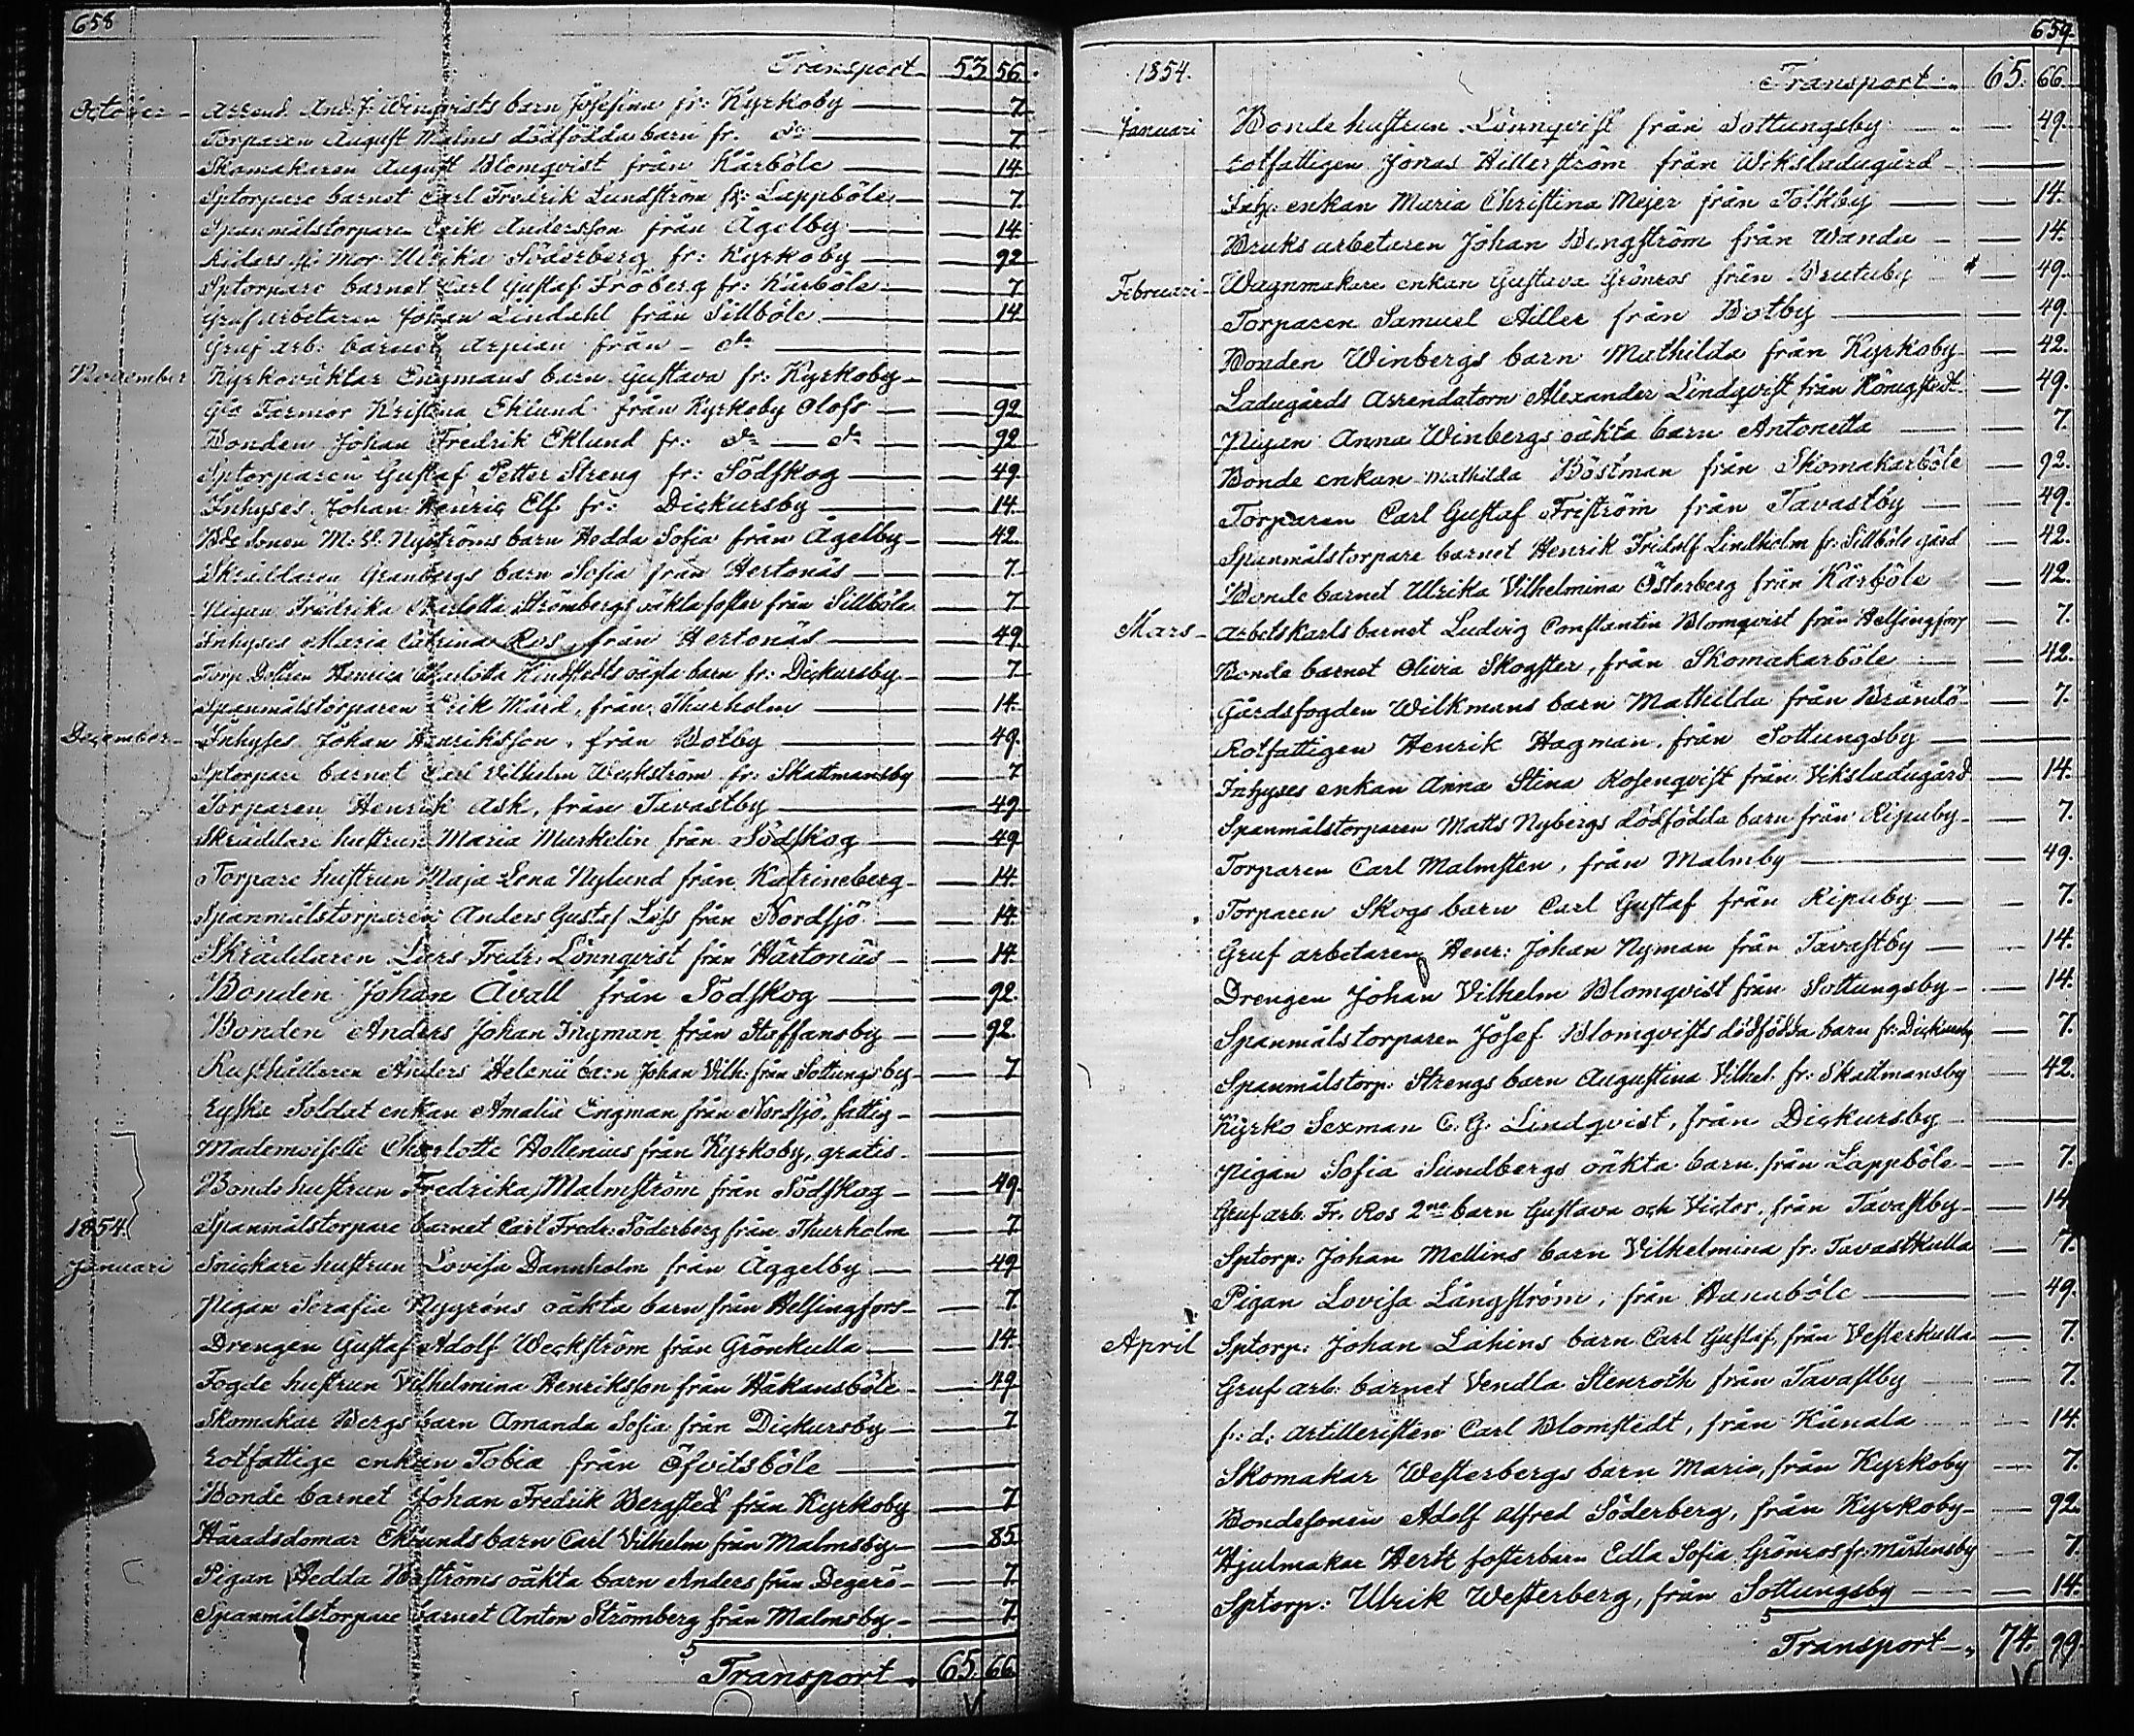 658
Transport 53 56.
October Arrend. And. J. Winqvists barn Josefina fr: Kyrkoby 7
Torparen August Malms dödfödda barn fr. do 7
Skomakaren August Blomqvist från Kårböle 14
Sptorpare barnet Carl Fredrik Lundström fr: Lappböle 7
Spanmålstorparen Erik Andersson från Ågelby 14
Mor Ulrika Söderberg fr: Kyrkoby 92
Sptorpare barnet Carl Gustaf Fröberg fr: Kårböle 7
Grufarbetaren Johan Lindahl från Sillböle 14
Gruf arb: barnet från do
November Kyrkoväktar Engmans barn Gustava fr: Kyrkoby
Gla Farmor Kristina Eklund från Kyrkoby Olofs 92
Bonden Johan Fredrik Eklund fr: do do 92
Sptorparen Gustaf Petter Streng fr: Södskog 49
Inhyses Johan Henric Elf fr: Dickursby 14
Bde sonen M: Nyströms barn Hedda Sofia från Ågelby 42
Skräddaren Granbergs barn Sofia från Hertonäs 7
Pigan Fredrika Charlotta Strömbergs oäkta foster från Sillböle 7
Inhyses Maria Catrina Ros från Hertonäs 49
Torp Dottren Henrica Charlotta Kindstedts oägta barn fr: Dickursby 7
Spanmålstorparen Erik Mård, från Thurholm 14
December Inhyses Johan Henriksson, från Botby 49
Sptorpare barnet Carl Vilhelm Weckström fr: Skattmansby 7
Torparen Henrik Ask, från Tavastby 49
Skräddare hustrun Maria Murkelin från Södskog 49
Torpare hustrun Maja Lena Nylund från Katrineberg 14
Spanmålstorparen Anders Gustaf Löfs från Nordsjö 14
Skräddaren Lars Fredr: Lönnqvist från Hårtonäs 14
Bonden Johan Åvall från Södskog 92
Bonden Anders Johan Ingman från Staffansby 92
Rusthållaren Anders Helenii barn Johan Vilh: från Sottungsby 7
Ryska Soldat enkan Amalia Engman från Nordsjö, fattig
Mademoiselle Charlotte Hollenius från Kyrkoby, gratis
Bonde hustrun Fredrika Malmström från Södskog 49
1854. Spanmålstorpare barnet Carl Fredr: Söderberg från Thurholm 7
Januari Snickare hustrun Lovisa Dannholm från Åggelby 49
Pigan Serafia Nygréns oäkta barn från Helsingfors 7
Drengen Gustaf Adolf Weckström från Grönkulla 14
Fogde hustrun Vilhelmina Henriksson från Håkansböle 49
Skomakar Bergs barn Amanda Sofia från Dickursby 7
Rotfattige enkan Tobia från Öfvitsböle
Bonde barnet Johan Fredrik Bergsted från Kyrkoby 7
Häradsdomar Eklunds barn Carl Vilhelm från Malmsby 85
Pigan Hedda Boströms oäkta barn Anders från Degerö 7
Spanmålstorpare barnet Anton Strömberg från Malmsby 7
Transport 65. 66
659
1854. Transport 65. 66
Januari Bonde hustrun Lönnqvist från Sottungsby 49.
Rotfattigen Jonas Hillerström från Wiksladugård
Inhy: enkan Maria Christina Mejer från Tolkby 14.
Bruks arbetaren Johan Bengström från Wanda 14.
Februari Wagnmakare enkan Gustava Grönros från Brutuby 49.
Torparen Samuel Ailler från Botby 49.
Bonden Winbergs barn Mathilda från Kyrkoby 42.
Ladugårds Arrendatorn Alexander Lindqvist från Königstedt 49.
Pigan Anna Winbergs oäkta barn Antonetta 7
Bonde enkan Mathilda Böstman från Skomakarböle 92.
Torparen Carl Gustaf Friström från Tavastby 49.
Spanmålstorpare barnet Henrik Fridolf Lindholm fr: Sillböle gård 42.
Bonde barnet Ulrika Vilhelmina Österberg från Kårböle 42.
Mars Arbetskarls barnet Ludvig Constantin Blomqvist från Helsingfors 7.
Bonde barnet Olivia Skogster, från Skomakarböle 42.
Gårdsfogden Wilkmans barn Mathilda från Brändö 7.
Rotfattigen Henrik Hagman, från Sottungsby
Inhyses enkan Anna Stina Rosenqvist från Viksladugård 14.
Spanmålstorparen Matts Nybergs dödfödda barn från Ripuby 7.
Torparen Carl Malmsten, från Malmby 49.
Torparen Skogs barn Carl Gustaf från Ripuby 7.
Gruf arbetaren Henr: Johan Nyman från Tavastby 14.
Drengen Johan Vilhelm Blomqvist från Sottungsby 14.
Spanmålstorparen Josef Blomqvists dödfödda barn fr: Dickursby 7.
Spanmålstorp: Strengs barn Augustina Vilhel. fr: Skattmansby 42.
Kyrko Sexman C. G. Lindqvist, från Dickursby
Pigan Sofia Sundbergs oäkta barn från Lappböle 7.
Gruf arb. Fr. Ros 2ne barn Gustava och Victor, från Tavastby 14
Sptorp: Johan Mellins barn Vilhelmina fr: Tavastkulla 7.
Pigan Lovisa Långström, från Hanaböle 49.
April Sptorp: Johan Lahins barn Carl Gustaf, från Vesterkulla 7.
Gruf arb: barnet Vendla Stenroth från Tavastby 7.
f: d: artilleristen Carl Blomstedt, från Kånala 14.
Skomakar Westerbergs barn Maria, från Kyrkoby 7.
Bondesonen Adolf Alfred Söderberg, från Kyrkoby 92.
Hjulmakar Hertz fosterbarn Edla Sofia Grönros fr: Mårtensby 7.
Sptorp: Ulrik Westerberg, från Sottungsby 14.
Transport 74. 99.